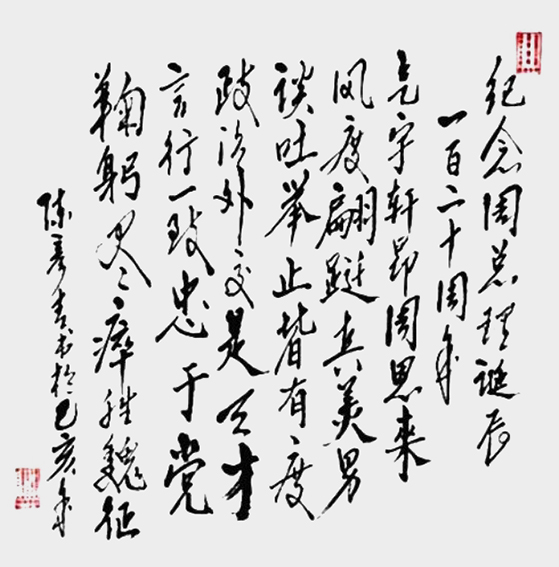 纪念周总理诞辰
一百二十周年
气宇轩昂周恩来
风度翩跹真美男
谈吐举止皆有度
政治外交是天才
言行一致忠于党
鞠躬尽瘁胜魏征
陈书於己亥年